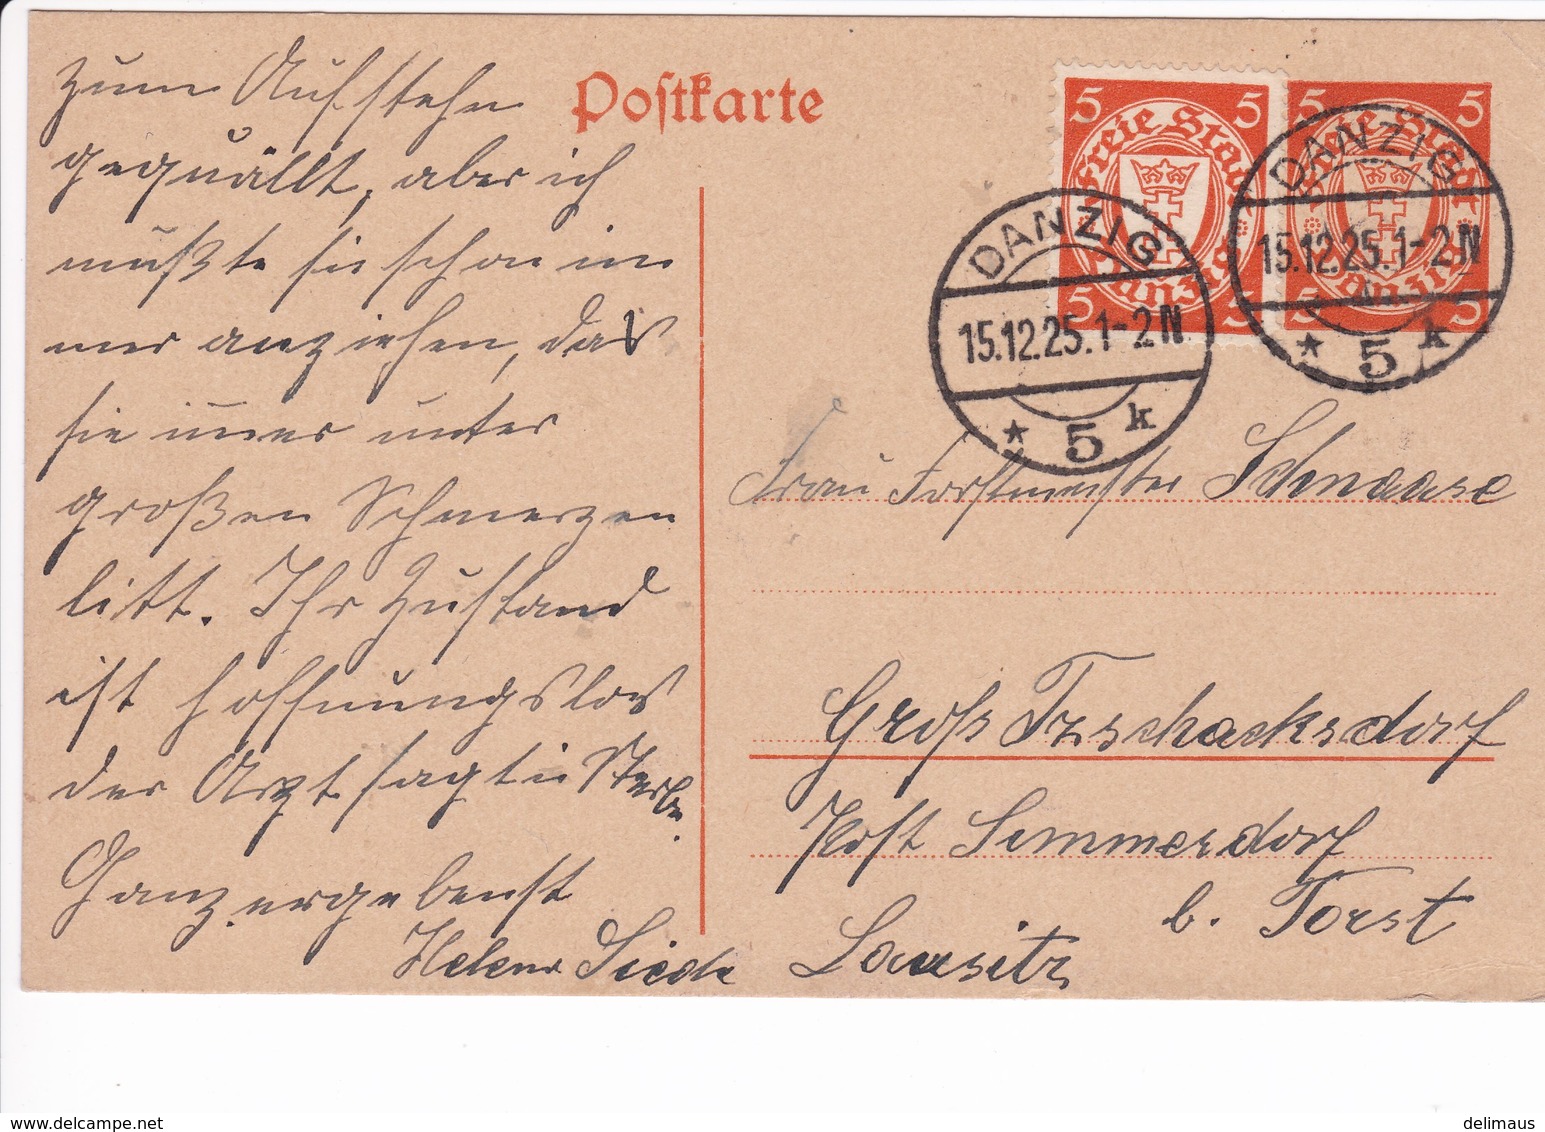 zum Aufstehn
gequällt, aber ich
mußte sie schon im
mer anziehen, das
sie immer unter
großen Schmerzen
litt. Ihr Zustand
ist hoffnungslos
der Arzt sagt
Ganz ergebenst
Helene Siede
Postkarte
5 5
Freie Stadt
Danzig
5 5
5 5
Freie Stadt
Danzig
5 5
DANZIG
15.12.25.1-2N
* 5 k
DANZIG
15.12.25.1-2N
* 5 k
Frau Forstmeister Schnaase
Groß Tzschacksdorf
Post Simmersdorf
b. Forst
Lausitz
www.delcampe.net
delimaus